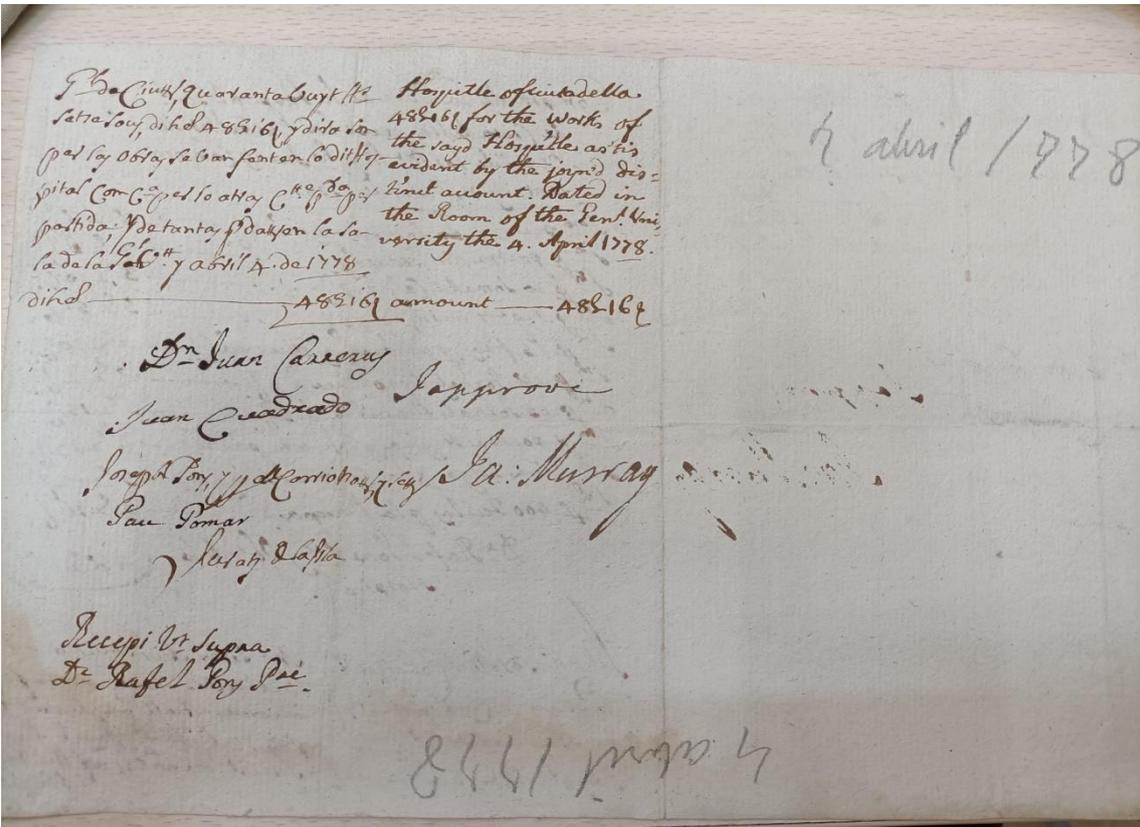 de Ciutt, Quaranta buyt ll.s
setze sous, dihel 48 L 16 S, y dita son
per les obras se van fent en la dit Hos-
pital com per lo atras
partida; y de tantas en la sa-
la de la y abril 4. de 1778
dihel 48 L 16 S
Hospitle of Ciutadella
48 L 16 S for the works of
the sayd Hospitle as tis
evident by the joyn'd dis-
tinct acount. Dated in
the Room of the Genl. Uni-
versity the 4. April 1778.
amount 48 L 16 S
Dn. Juan Carreras
Juan Quadrado
Joseph Pons, y
Pau Pomar
Jurats de la Isla
I approve
Ja: Murray
Recepi Vt Supra
Dr. Rafel Pons Pre.
4 abril 1778
4 abril 1778